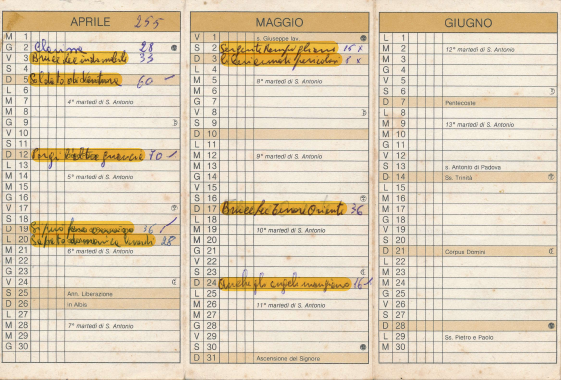 APRILE 255
M 1
G 2 28
V 3 33
S 4
D 5 60
L 6
M 7 4° martedì di S. Antonio
M 8
G 9
V 10
S 11
D 12 Porgi l'altra guancia 70
L 13
M 14 5° martedì di S. Antonio
M 15
G 16
V 17
S 18
D 19 Si può fare amigo 36
L 20 28
M 21 6° martedì di S. Antonio
M 22
G 23
V 24
S 25 Ann. Liberazione
D 26 in Albis
L 27
M 28 7° martedì di S. Antonio
M 29
G 30
MAGGIO
V 1 s. Giuseppe lav.
S 2 Sergente 15 x
D 3 5 x
L 4
M 5 8° martedì di S. Antonio
M 6
G 7
V 8
S 9
D 10
L 11
M 12 9° martedì di S. Antonio
M 13
G 14
V 15
S 16
D 17 Oriente 36
L 18
M 19 10° martedì di S. Antonio
M 20
G 21
V 22
S 23
D 24 Anche gli angeli mangiano 16
L 25
M 26 11° martedì di S. Antonio
M 27
G 28
V 29
S 30
D 31 Ascensione del Signore
GIUGNO
L 1
M 2 12° martedì di S. Antonio
M 3
G 4
V 5
S 6
D 7 Pentecoste
L 8
M 9 13° martedì di S. Antonio
M 10
G 11
V 12
S 13 s. Antonio di Padova
D 14 Ss. Trinità
L 15
M 16
M 17
G 18
V 19
S 20
D 21 Corpus Domini
L 22
M 23
M 24
G 25
V 26
S 27
D 28
L 29 Ss. Pietro e Paolo
M 30